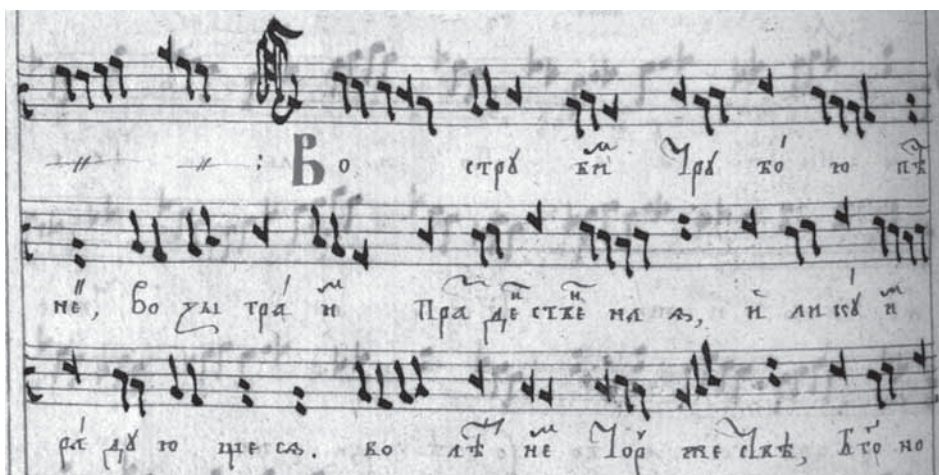 : Во стрꙋ би́м трꙋ бо́ ю пѣ
не́й, во зы гра́ им пра де стве на ѧ, и ли кꙋ́ им
ра́ дꙋ ю ще сѧ. во лѣ нем тор же ствѣ, но